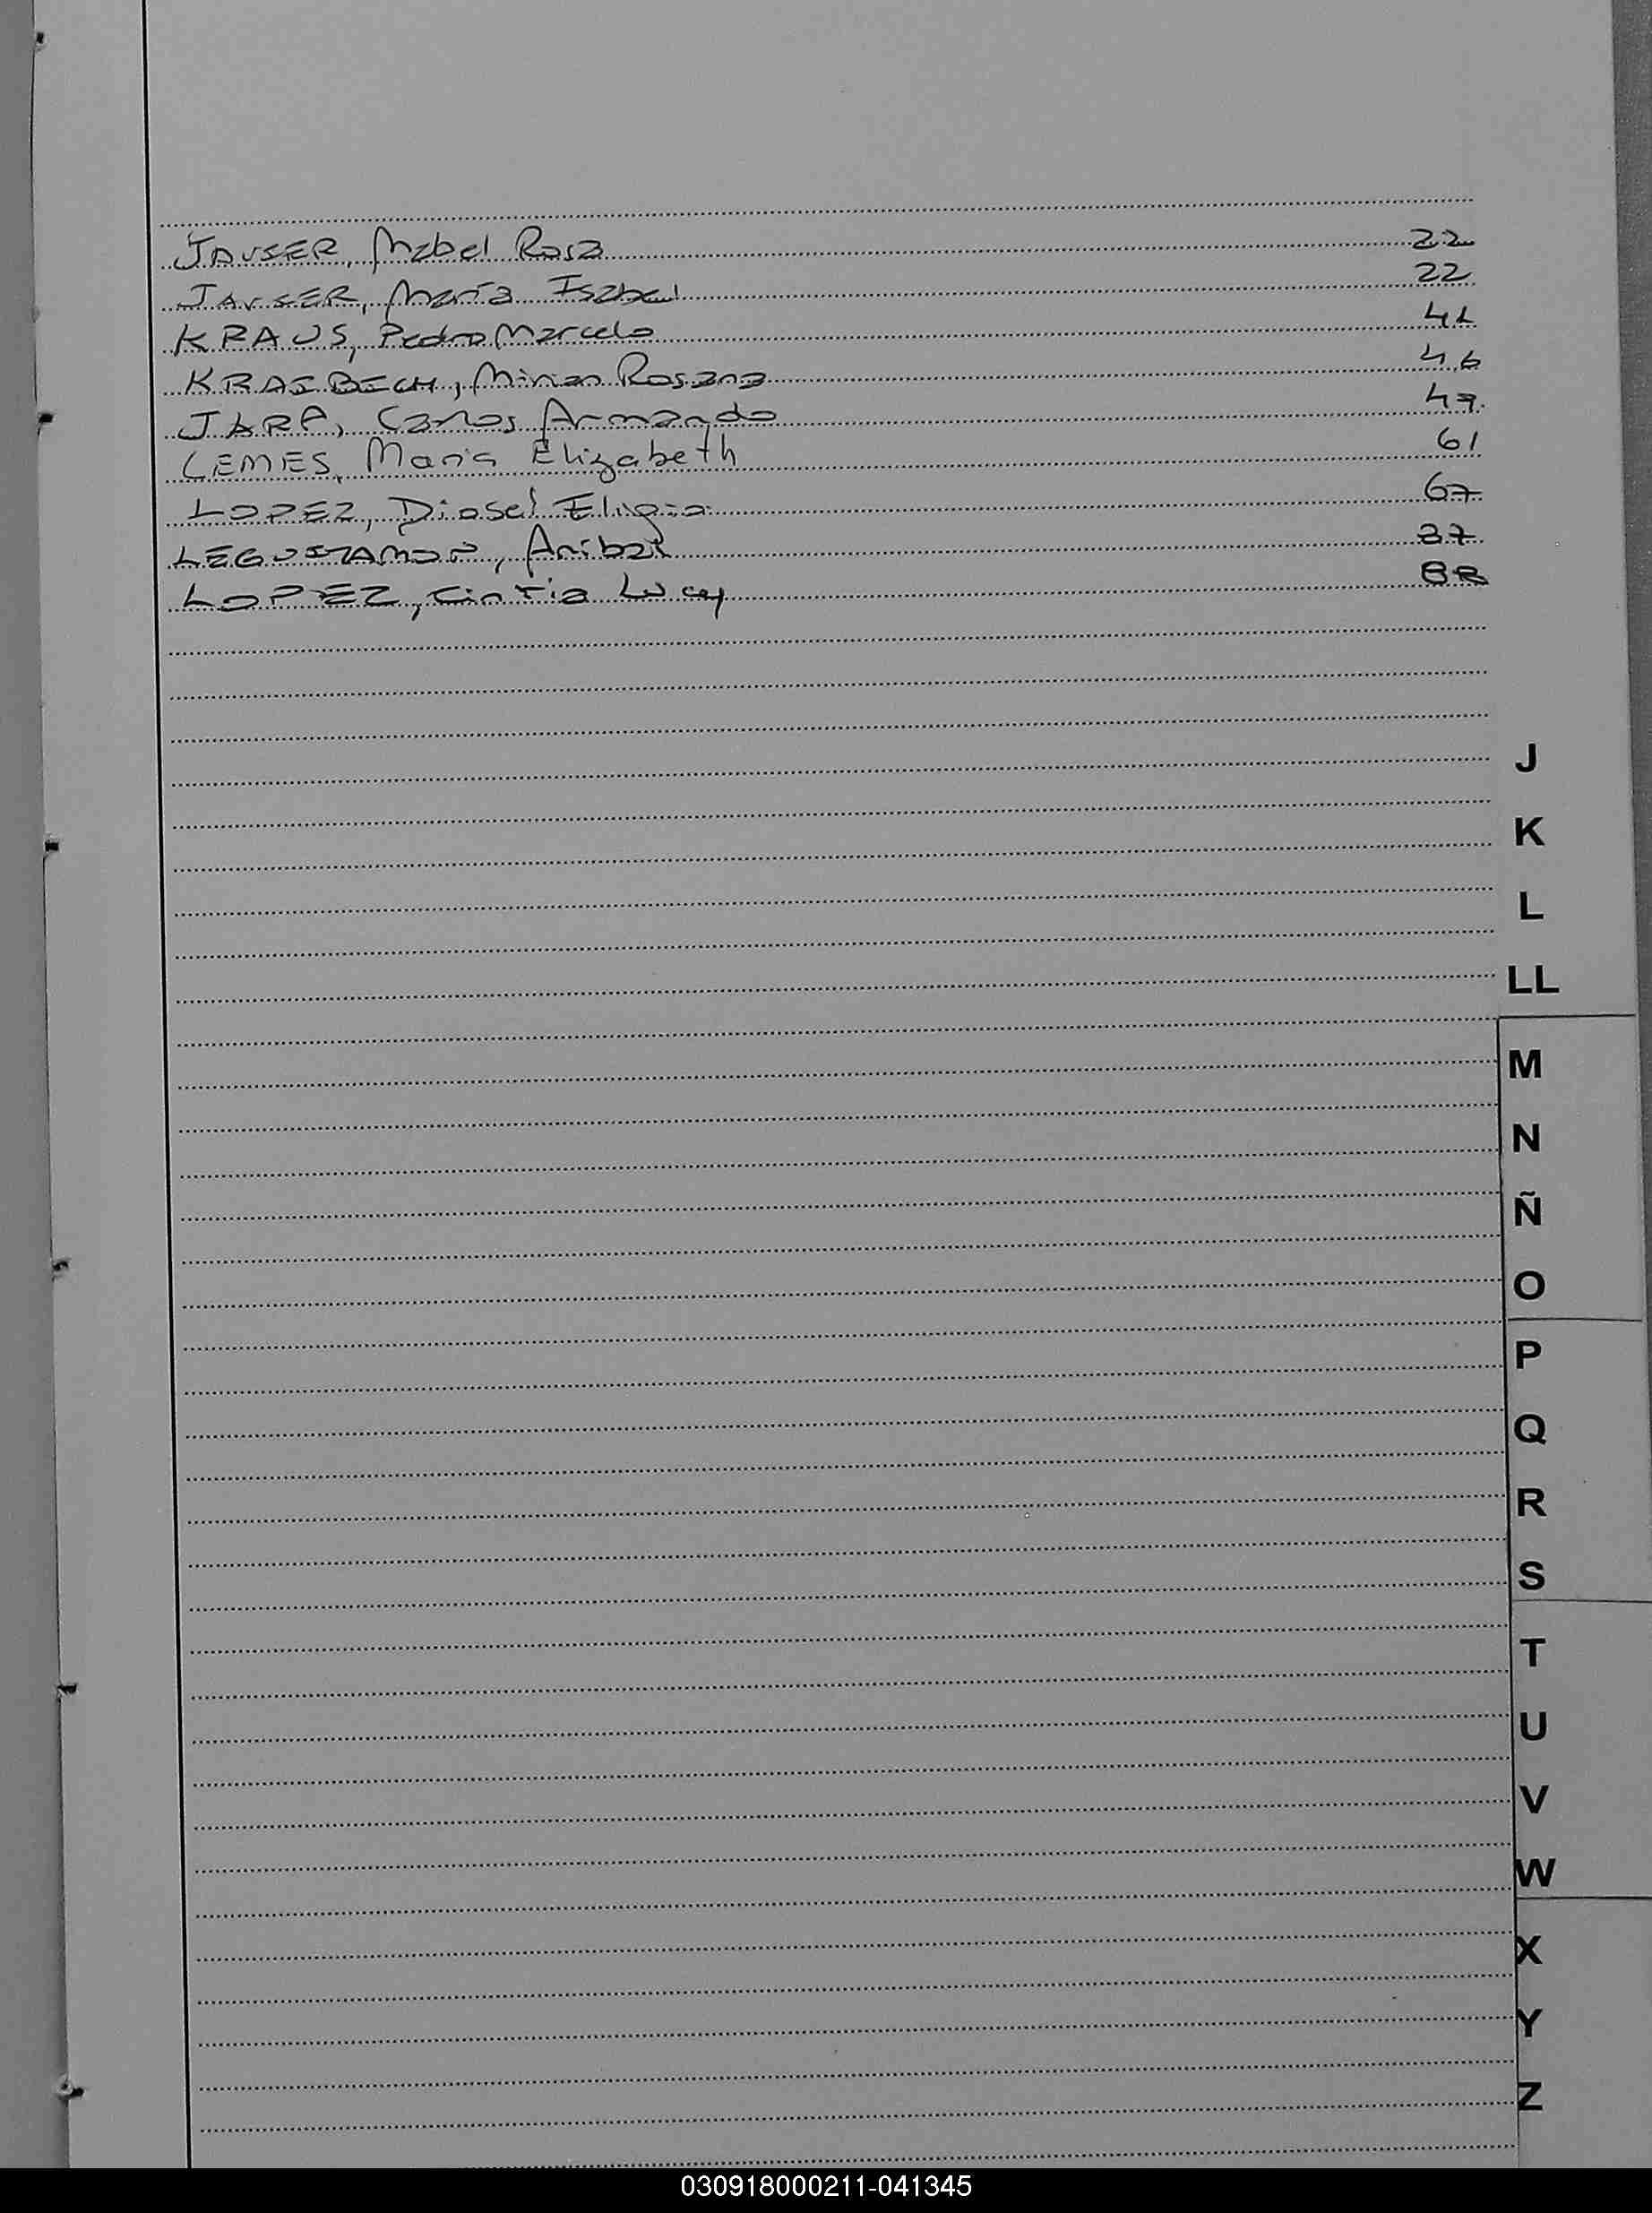 JAUSER, Mabel Rosa 22
JAUSER, María Isabel 22
KRAUS, Pedro Marcelo 41
KRAIBICH, Mirian Rosana 46
JARA, Carlos Armando 47
LEMES, Maria Elizabeth 61
LOPEZ, Diosel Eligio 67
LEGUIZAMON, Anibal 87
LOPEZ, Cintia Lucy 88
J
K
L
LL
M
N
Ñ
O
P
Q
R
S
T
U
V
W
X
Y
Z
030918000211-041345